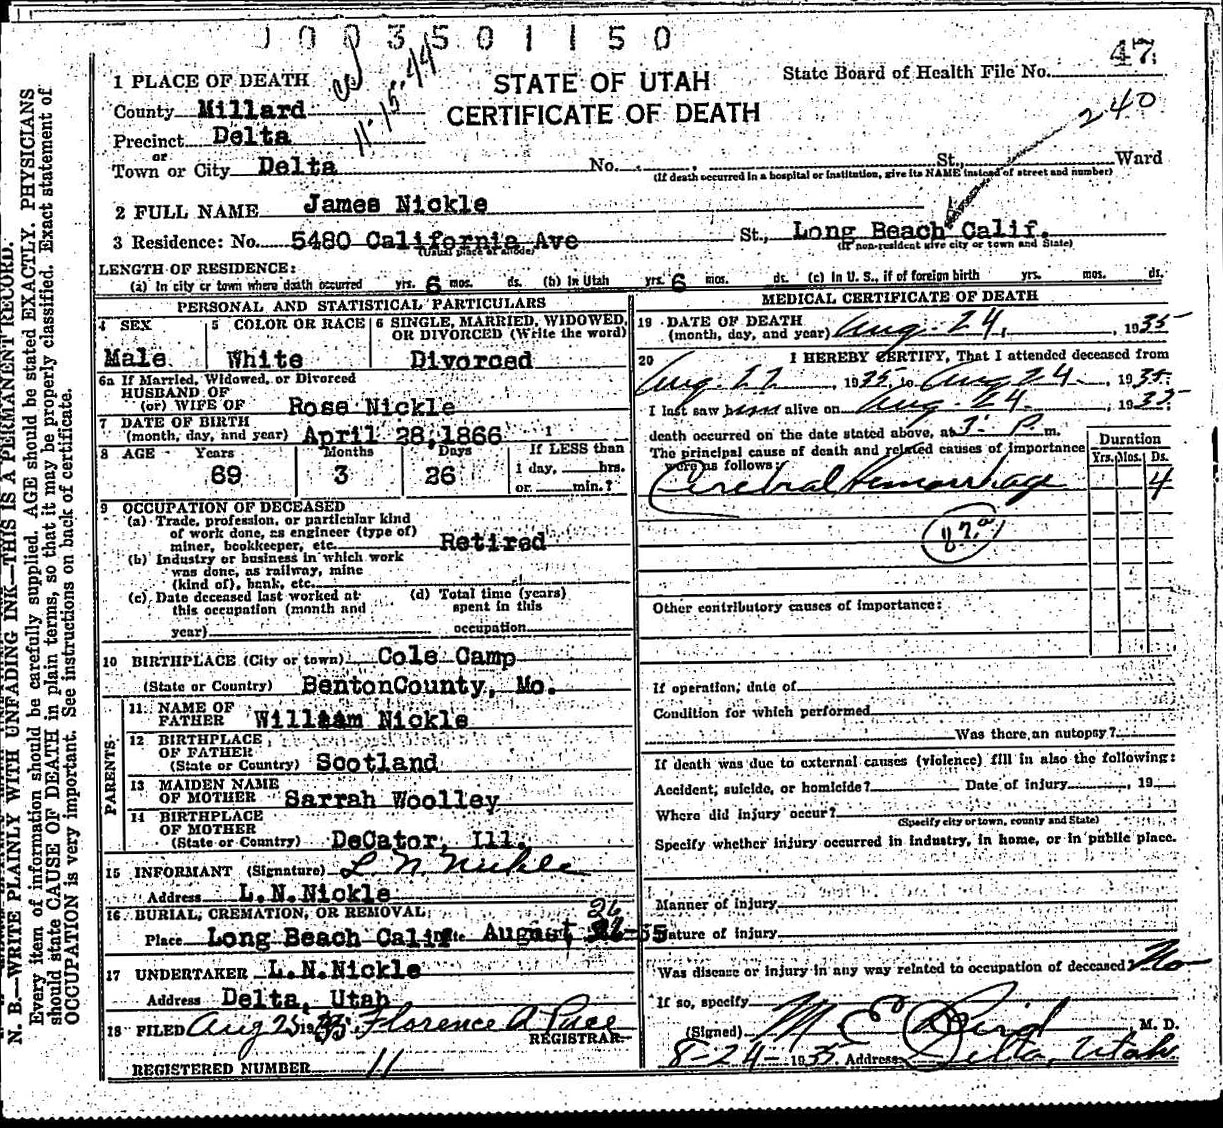 1003501150
47
11-15-44
240
1 PLACE OF DEATH
County Millard
Precinct Delta
or
Town or City Delta
STATE OF UTAH
CERTIFICATE OF DEATH
State Board of Health File No.
No. , St., Ward
(If death occurred in a hospital or institution, give its NAME instead of street and number)
2 FULL NAME James Nickle
3 Residence: No. 5480 California Ave St., Long Beach Calif.
(Usual place of abode) (If non-resident give city or town and State)
LENGTH OF RESIDENCE:
(a) In city or town where death occurred yrs. 6 mos. ds. (b) In Utah yrs. 6 mos. ds. (c) In U. S., if of foreign birth yrs. mos. ds.
PERSONAL AND STATISTICAL PARTICULARS
4 SEX
Male
5 COLOR OR RACE
White
6 SINGLE, MARRIED, WIDOWED,
OR DIVORCED (Write the word)
Divorced
6a If Married, Widowed, or Divorced
HUSBAND OF
(or) WIFE OF Rose Nickle
7 DATE OF BIRTH
(month, day, and year) April 28, 1866
8 AGE Years Months Days If LESS than
69 3 26 1 day, hrs.
or min.?
9 OCCUPATION OF DECEASED
(a) Trade, profession, or particular kind
of work done, as engineer (type of)
miner, bookkeeper, etc. Retired
(b) Industry or business in which work
was done, as railway, mine
(kind of), bank, etc.
(c) Date deceased last worked at (d) Total time (years)
this occupation (month and spent in this
year) occupation
10 BIRTHPLACE (City or town) Cole Camp
(State or Country) BentonCounty, Mo.
PARENTS
11 NAME OF
FATHER William Nickle
12 BIRTHPLACE
OF FATHER
(State or Country) Scotland
13 MAIDEN NAME
OF MOTHER Sarrah Woolley
14 BIRTHPLACE
OF MOTHER
(State or Country) DeCator, Ill.
15 INFORMANT (Signature) L. N. Nickle
Address L.N.Nickle
16 BURIAL, CREMATION, OR REMOVAL
26
Place Long Beach Calif August,
17 UNDERTAKER L.N.Nickle
Address Delta, Utah
18 FILED Aug 25 1935 Florence A
REGISTRAR
REGISTERED NUMBER 11
MEDICAL CERTIFICATE OF DEATH
19 DATE OF DEATH
(month, day, and year) Aug. 24, 1935
20 I HEREBY CERTIFY, That I attended deceased from
Aug. 22, 1935, to Aug 24, 1935.
I last saw him alive on Aug. 24, 1935
death occurred on the date stated above, at 3- P m.
The principal cause of death and related causes of importance
were as follows:
Duration
Yrs. Mos. Ds.
Cerebral Hemorrhage 4
Other contributory causes of importance:
If operation, date of
Condition for which performed
Was there an autopsy?
If death was due to external causes (violence) fill in also the following:
Accident, suicide, or homicide? Date of injury , 19
Where did injury occur?
(Specify city or town, county and State)
Specify whether injury occurred in industry, in home, or in public place.
Manner of injury
Nature of injury
Was disease or injury in any way related to occupation of deceased? No
If so, specify
(Signed) M E Bird M. D.
8-24-1935 Address Delta, Utah
N. B.—WRITE PLAINLY WITH UNFADING INK—THIS IS A PERMANENT RECORD.
Every item of information should be carefully supplied. AGE should be stated EXACTLY. PHYSICIANS
should state CAUSE OF DEATH in plain terms, so that it may be properly classified. Exact statement of
OCCUPATION is very important. See instructions on back of certificate.